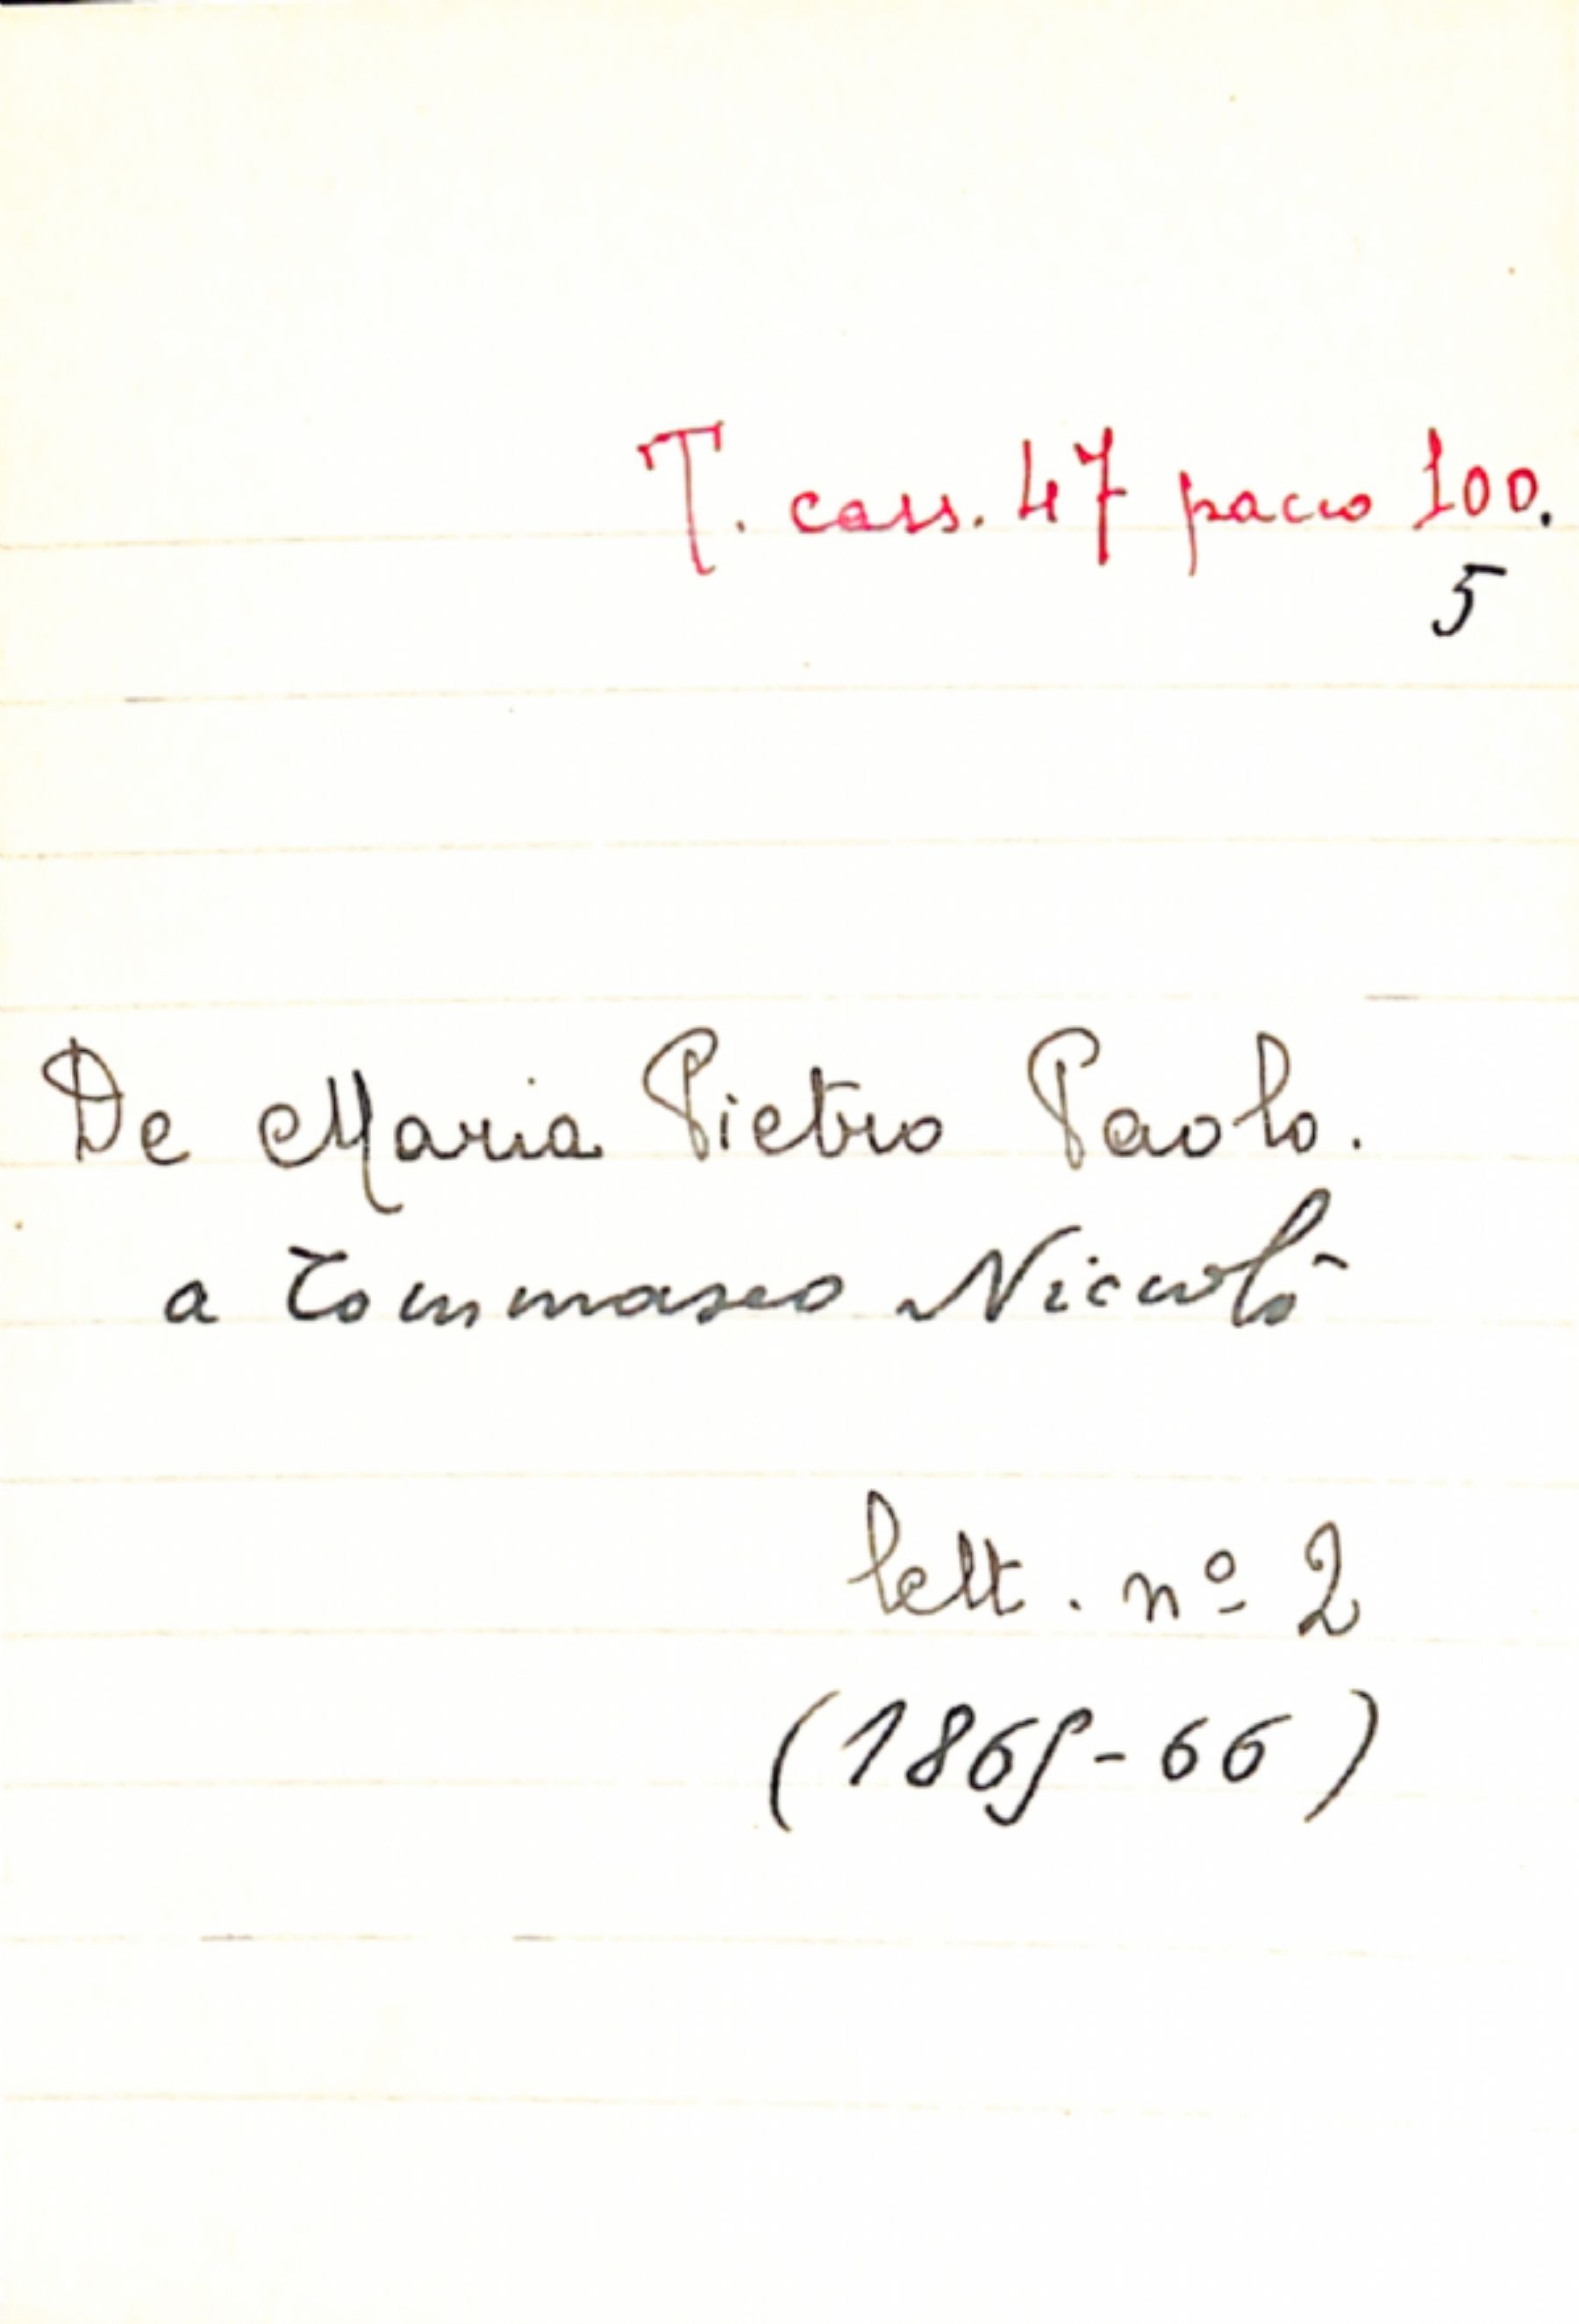 T. cass. 47 pacco 100.
5
De Maria Pietro Paolo.
a Tommaseo Niccolò
lett. nº 2
(1865-66)